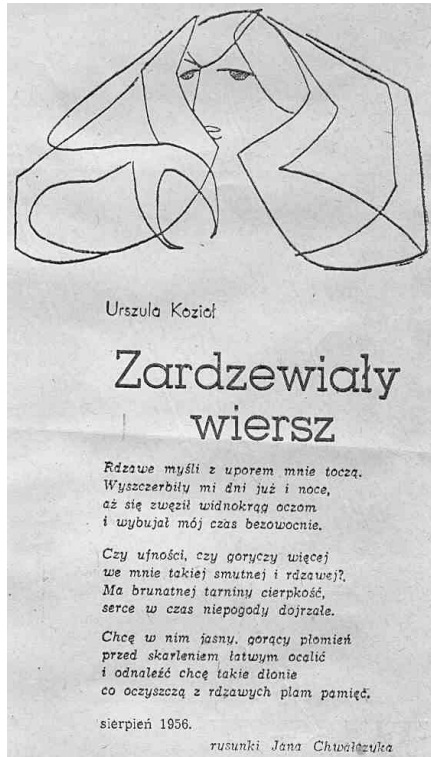 Urszula Kozioł
Zardzewiały
wiersz
Rdzawe myśli z uporem mnie toczą.
Wyszczerbiły mi dni już i noce,
aż się zwęził widnokrąg oczom
i wybujał mój czas bezowocnie.
Czy ufności, czy goryczy więcej
we mnie takiej smutnej i rdzawej?
Ma brunatnej tarniny cierpkość,
serce w czas niepogody dojrzałe.
Chcę w nim jasny, gorący płomień
przed skarleniem łatwym ocalić
i odnaleźć chcę takie dłonie
co oczyszczą z rdzawych plam pamięć.
sierpień 1956.
rysunki Jana Chwałczyka